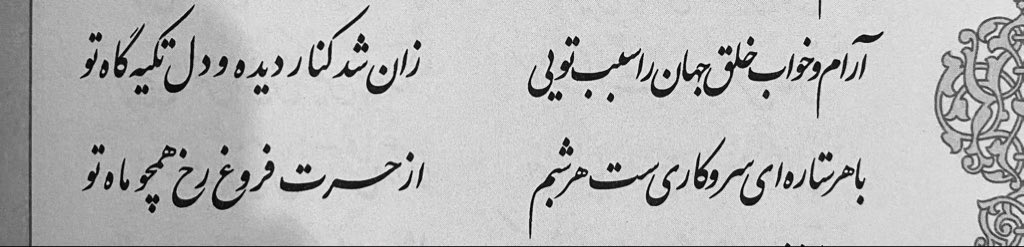 آرام و خواب خلق جهان را سبب تویی زان شد کنار دیده و دل تکیه گاه تو
با هر ستاره ای سر و کاری ست هر شبم از حسرت فروغ رخ همچو ماه تو